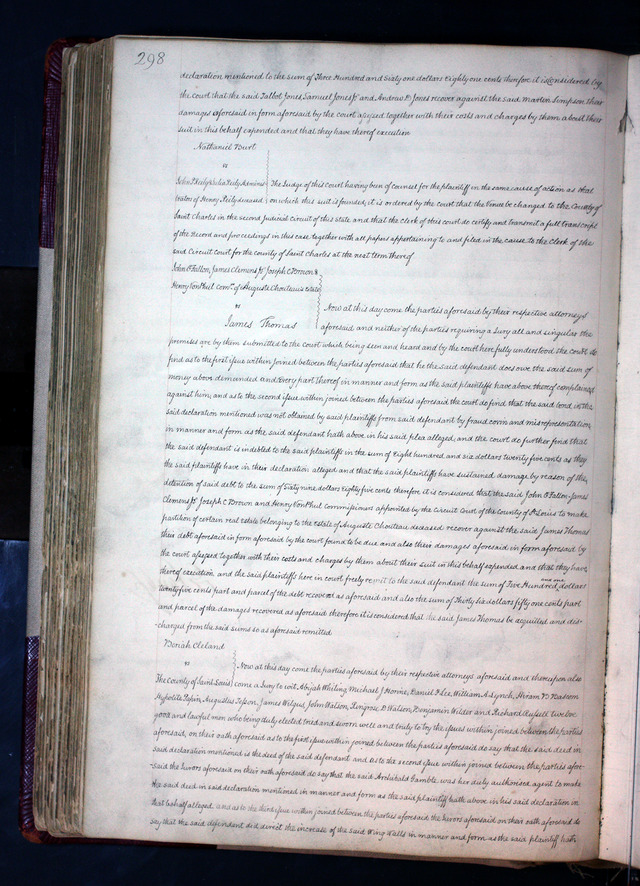 298
declaration mentioned to the sum of Three Hundred and Sixty one dollars Eighty one cents therefore it is considered by
the court that the said Talbot Jones, Samuel Jones Jr and Andrew D Jones recover against the said Marten Simpson their
damages aforesaid in form aforesaid by the court assessed together with their costs and charges by them about their
suit in this behalf expended and that they have thereof execution
Nathaniel Burt
vs
John P Reily & Julia Reily Adminis The Judge of this court having been of counsel for the plaintiff in the same cause of action as that
trators of Henry Reily deceased on which this suit is founded, it is ordered by the court that the venue be changed to the County of
Saint Charles in the second Judicial Circuit of this state and that the clerk of this court do certify and transmit a full transcript
of the Record and proceedings in this case together with all papers appertaining to and filed in the cause to the clerk of the
said Circuit court for the county of Saint Charles at the next term thereof
John O Fallon, James Clemens Jr Joseph C Brown &
Henry Von Phul comrs of Auguste Chouteau's Estate
vs
James Thomas
Now at this day come the parties aforesaid by their respective attorneys
aforesaid and neither of the parties requiring a Jury all and singular the
premises are by them submitted to the court which being seen and heard and by the court here fully understood the court do
find as to the first issue within joined between the parties aforesaid that he the said defendant does owe the said sum of
money above demanded and every part thereof in manner and form as the said plaintiffs have above thereof complained
against him; and as to the second issue within joined between the parties aforesaid the court do find that the said bond in the
said declaration mentioned was not obtained by said plaintiffs from said defendant by fraud covin and misrepresentation
in manner and form as the said defendant hath above in his said plea alleged; and the court do further find that
the said defendant is indebted to the said plaintiffs in the sum of Eight hundred and six dollars twenty five cents as they
the said plaintiffs have in their declaration alleged and that the said plaintiffs have sustained damage by reason of the
detention of said debt to the sum of Sixty nine dollars Eighty five cents therefore it is considered that the said John O Fallon James
Clemens Jr Joseph C Brown and Henry Von Phul commissioners appointed by the Circuit Court of the county of St Louis to make
partition of certain real estate belonging to the estate of Auguste Chouteau deceased recover against the said James Thomas
their debt aforesaid in form aforesaid by the court found to be due and also their damages aforesaid in form aforesaid by
the court assessed together with their costs and charges by them about their suit in this behalf expended and that they have
thereof execution, and the said plaintiffs here in court freely remit to the said defendant the sum of Five Hundred and one dollars
twenty five cents part and parcel of the debt recovered as aforesaid and also the sum of Thirty six dollars fifty one cents part
and parcel of the damages recovered as aforesaid therefore it is considered that the said James Thomas be acquitted and dis-
-charged from the said sums so as aforesaid remitted
Beriah Cleland
vs
The County of Saint Louis
Now at this day come the parties aforesaid by their respective attorneys aforesaid and thereupon also
come a Jury to wit, Abijah Whiting Michael J Horine, Daniel F Lee, William A Lynch, Hiram B Bascom
Hypolite Papin, Augustus Jepson, James Wilgus, John Watson, Ringrose D Watson, Benjamin Wilder and Richard Russell twelve
good and lawful men who being duly elected tried and sworn well and truly to try the issues within joined between the parties
aforesaid, on their oath aforesaid as to the first issue within joined between the parties aforesaid do say that the said deed in
said declaration mentioned is the deed of the said defendant and as to the second issue within joined between the parties afore-
-said the Jurors aforesaid on their oath aforesaid do say that the said Archibald Gamble was her duly authorised agent to make
the said deed in said declaration mentioned in manner and form as the said plaintiff hath above in his said declaration in
that behalf alleged, and as to the third issue within joined between the parties aforesaid the Jurors aforesaid on their oath aforesaid do
say that the said defendent did direct the increase of the said Wing Walls in manner and form as the said plaintiff hath